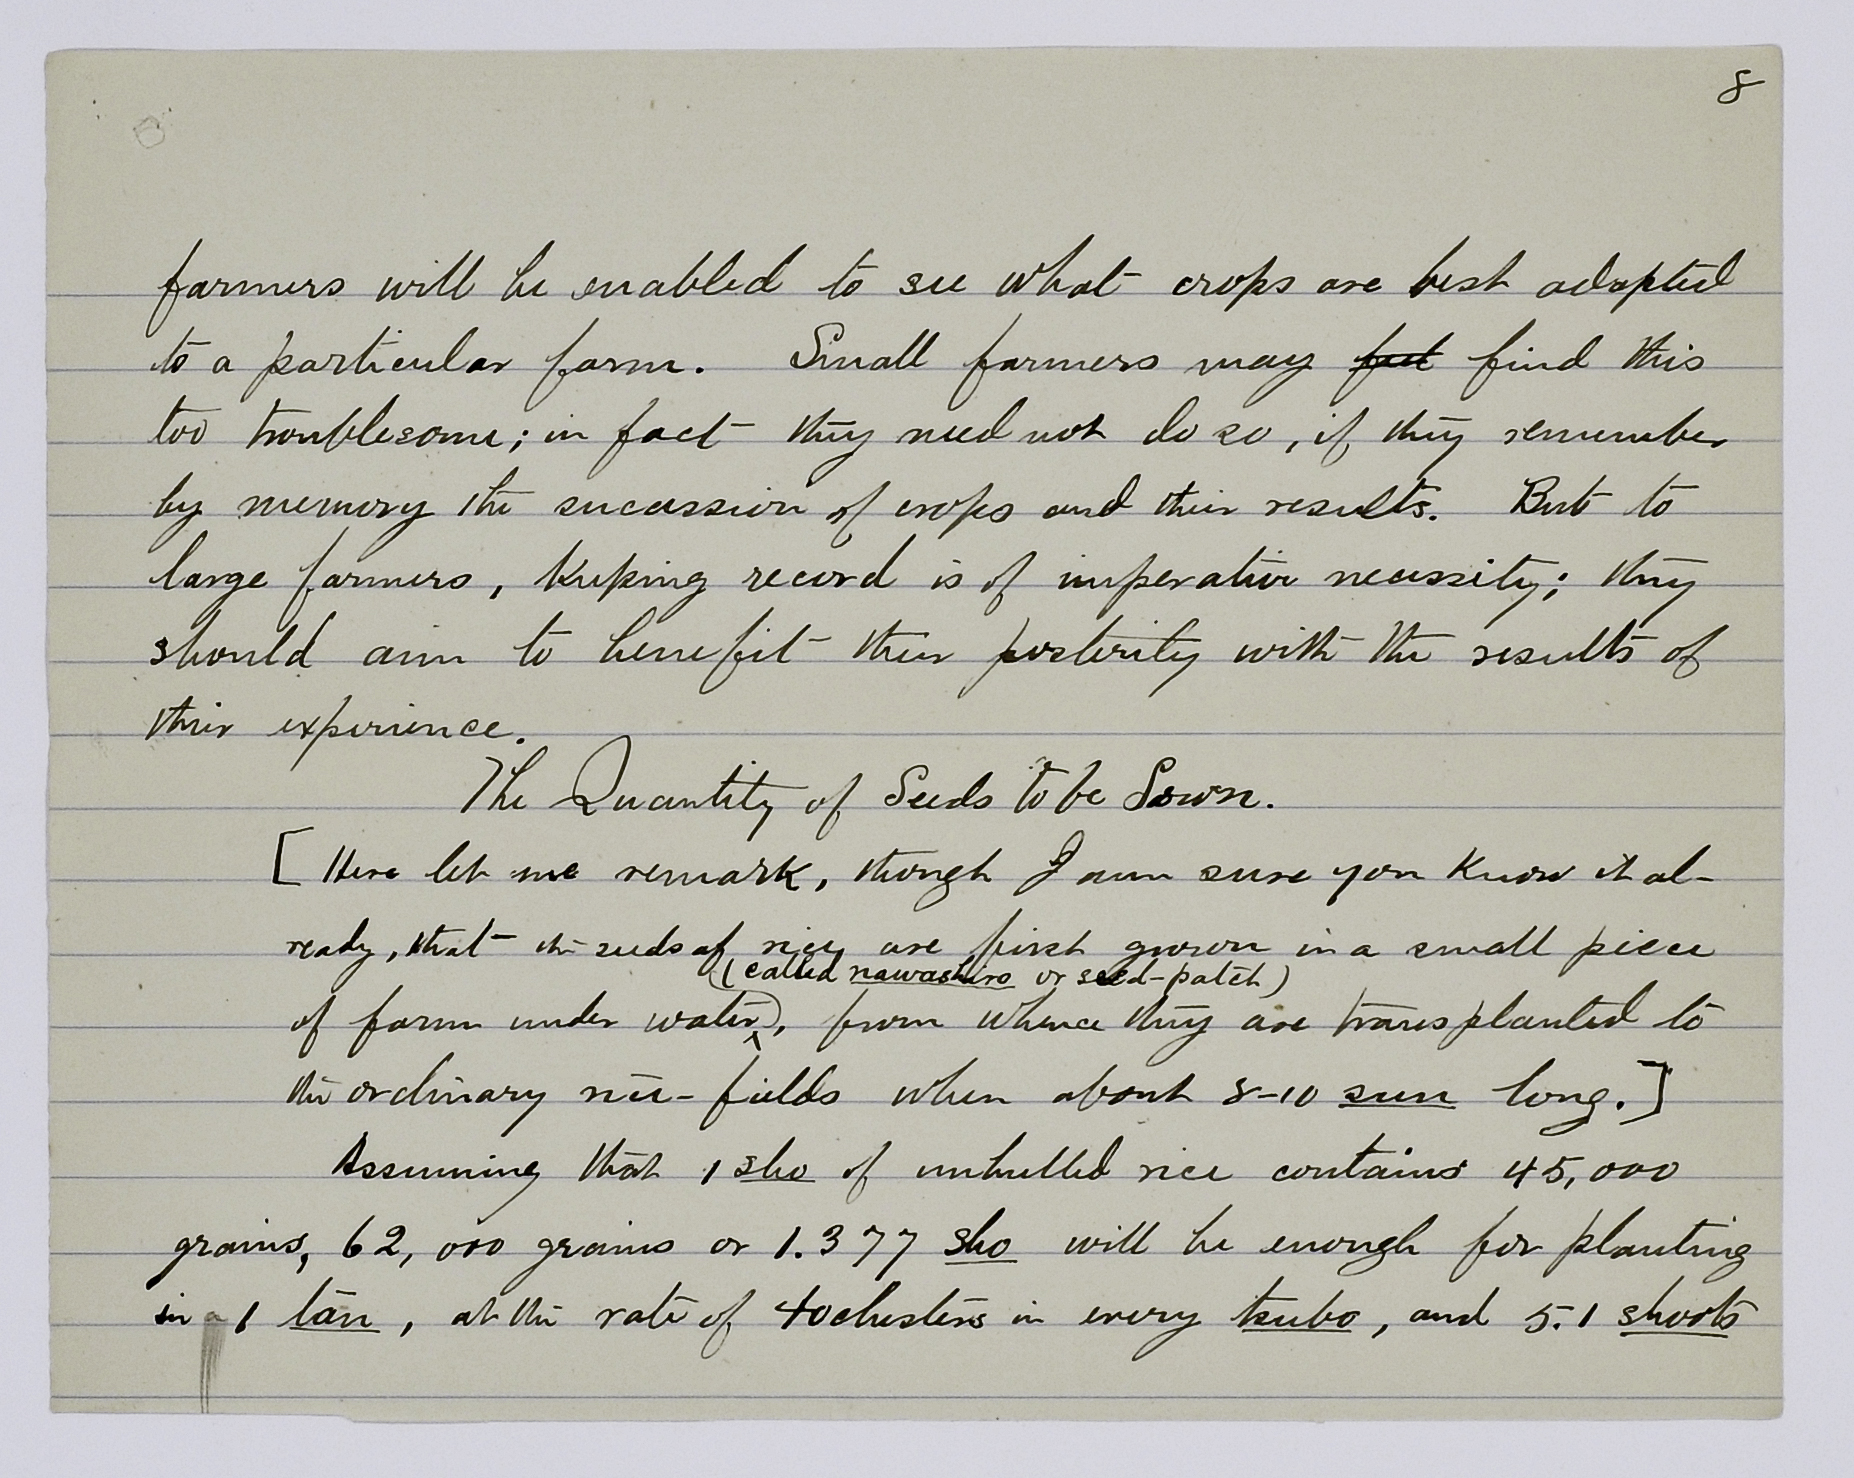 8
farmers will be enabled to see what crops are best adapted
to a particular farm. Small farmers may feel find this
too troublesome; in fact they need not do so, if they remember
by memory the succession of crops and their results. But to
large farmers, keeping record is of imperative necessity; they
should aim to benefit their posterity with the results of
their experience.
The Quantity of Seeds to be Sown.
[Here let me remark, though I am sure you know it al-
ready, that the seeds of rice are first grown in a small piece
(called nawashiro or seed-patch)
of farm under water), from whence they are transplanted to
the ordinary rice-fields when about 8-10 sun long.]
Assuming that 1 sho of unhulled rice contains 45,000
grains, 62,000 grains or 1.377 sho will be enough for planting
in a 1 tan, at the rate of 40 clusters in every tsubo, and 5.1 shoots